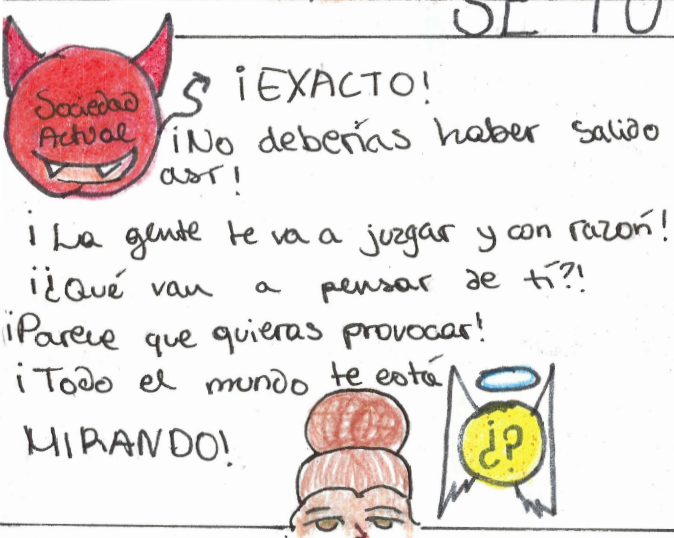 SÉ TÚ
Sociedad
Actual
¡EXACTO!
¡No deberías haber salido
así!
¡La gente te va a juzgar y con razón!
¡¿Qué van a pensar de tí?!
¡Parece que quieras provocar!
¡Todo el mundo te está
MIRANDO!
¿?